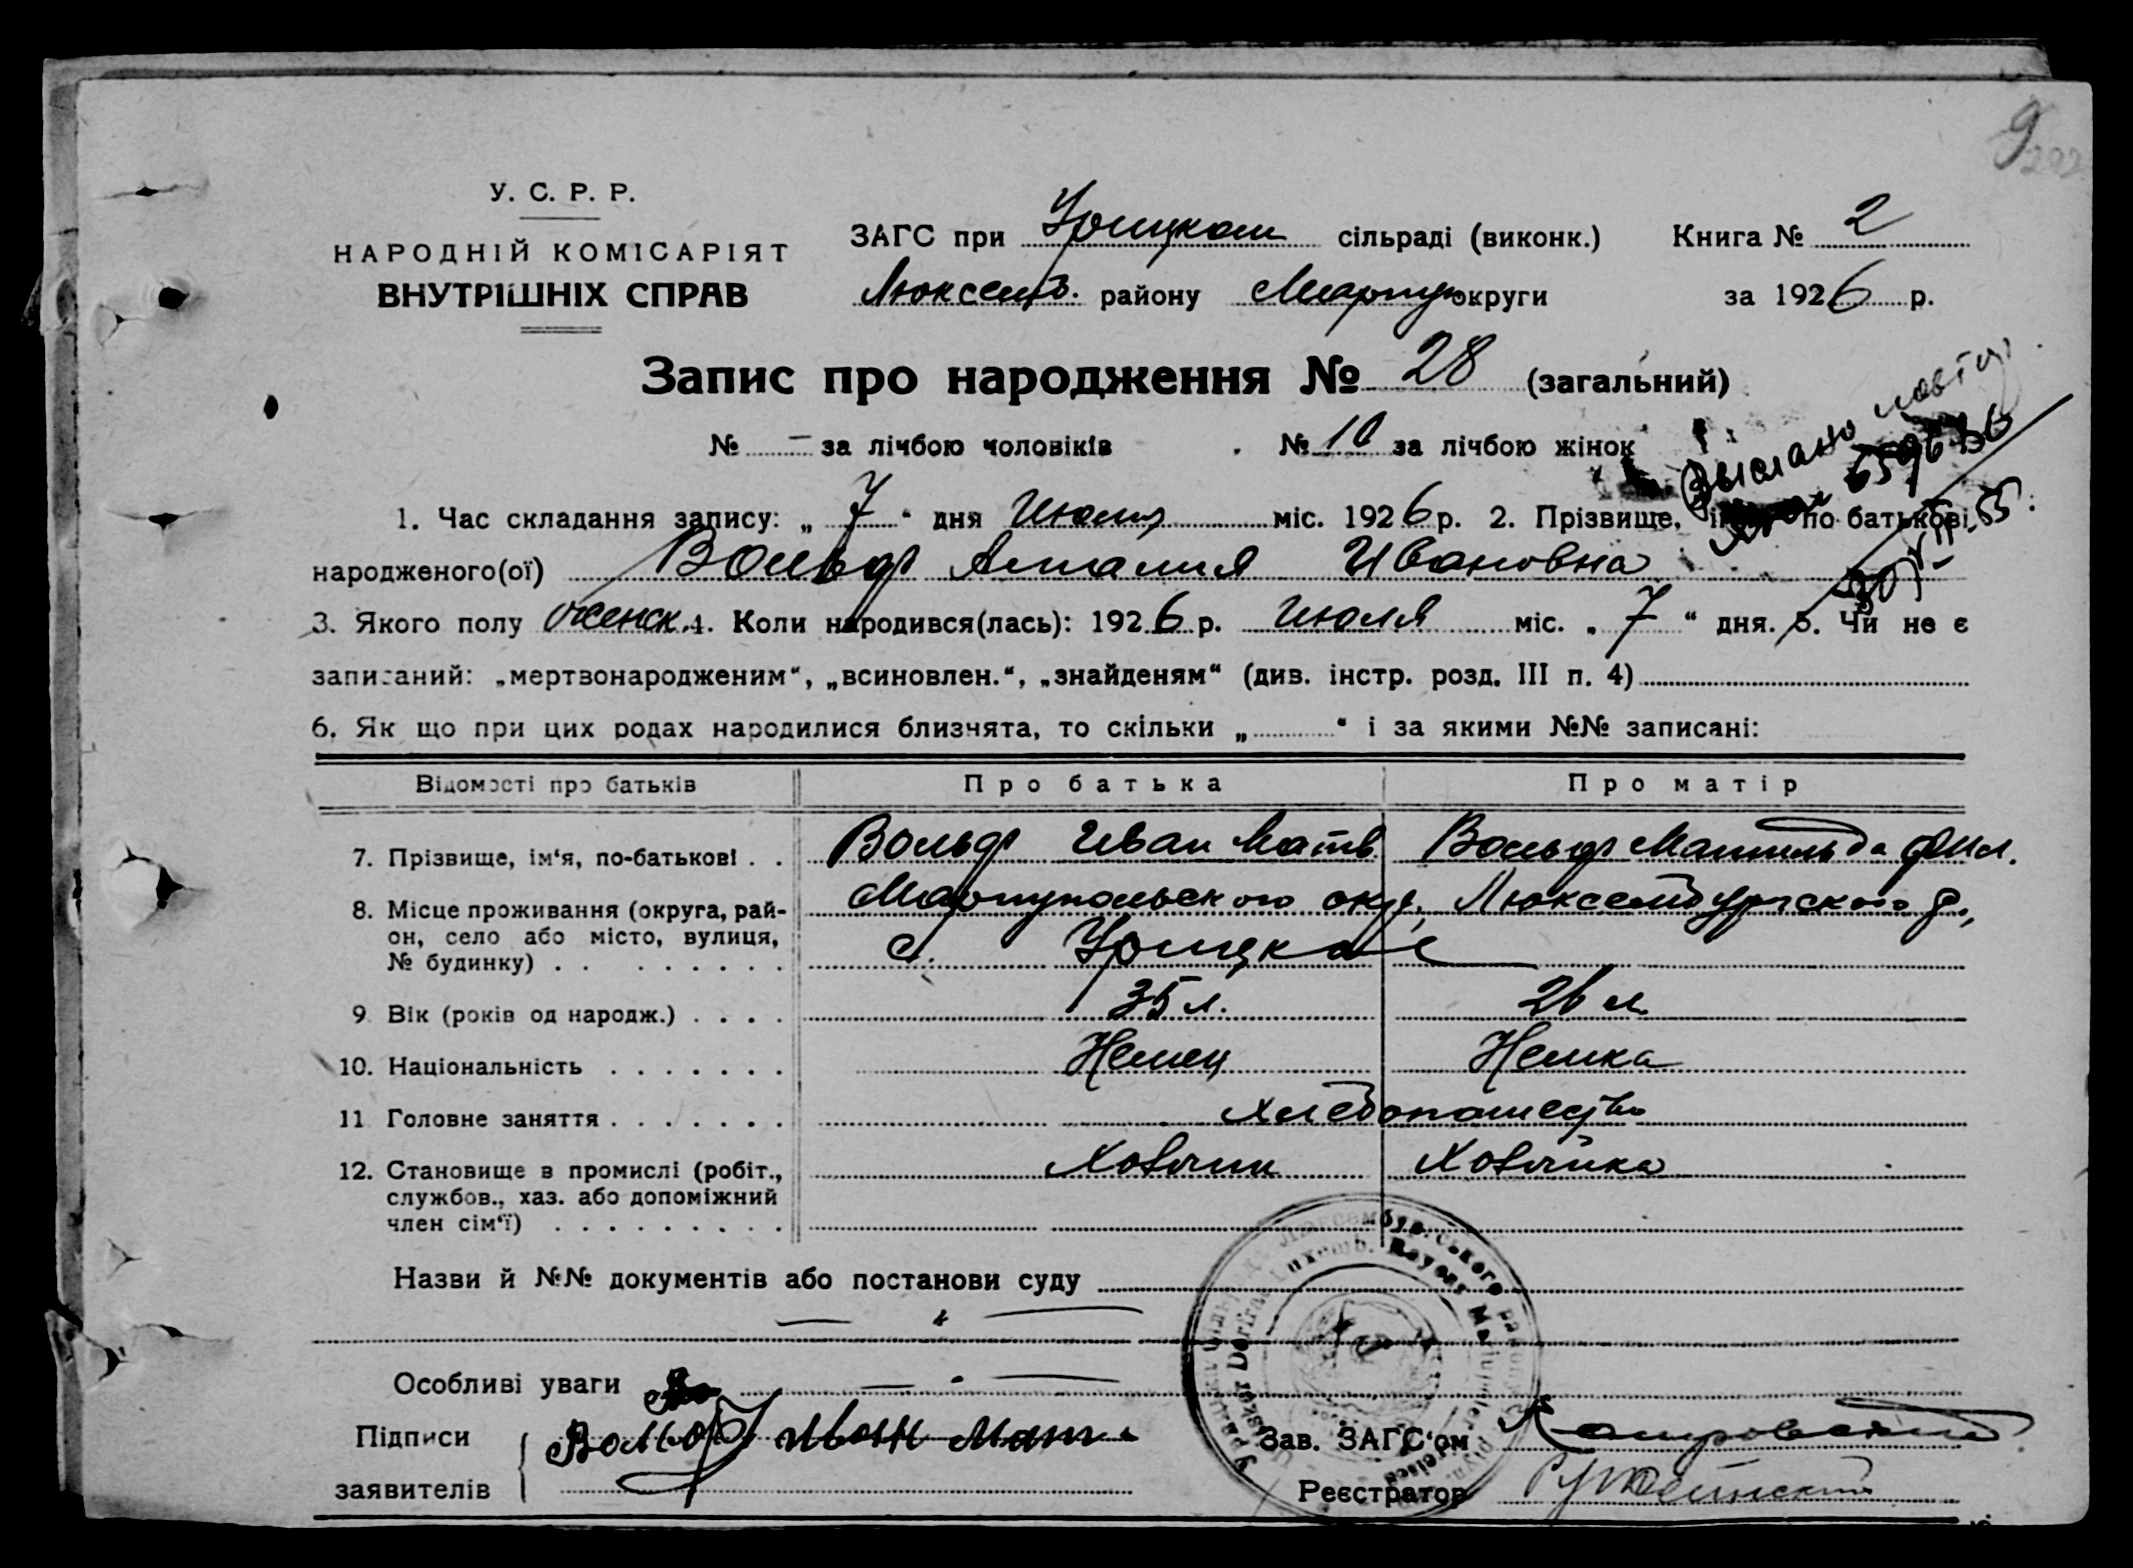 9
У. С. Р. Р.
НАРОДНІЙ КОМІСАРІЯТ
ВНУТРІШНІХ СПРАВ
ЗАГС при Урицком сільраді (виконк.) Книга № 2
Люксемб. району Мариуп округи за 1926 р.
Запис про народження № 28 (загальний)
№ – за лічбою чоловіків . № 10 за лічбою жінок
Выслано повтор
1. Час складання запису: „ 7 “ дня Июля міс. 1926 р. 2. Прізвище, по батькові
народженого(ої) Вольф Амалия Ивановна
3. Якого полу женск. 4. Коли народився(лась): 1926 р. Июля міс. „ 7 “ дня. 5. Чи не є
записаний: „мертвонародженим“, „всиновлен.“, „знайденям“ (див. інстр. розд. III п. 4)
6. Як що при цих родах народилися близнята, то скільки „ “ і за якими №№ записані:
Відомості про батьків Про батька Про матір
7. Прізвище, ім‘я, по-батькові . . Вольф Иван Матв. Вольф Матильда Фил.
8. Місце проживання (округа, рай- Мариупольского окр., Люксембургского р.,
он, село або місто, вулиця,
№ будинку) . . . . . . . . . с. Урицкое
9 Вік (років од народж.) . . . . 35 л. 26 л.
10. Національність . . . . . . . Немец Немка
11 Головне заняття . . . . . . . Хлебопашество
12. Становище в промислі (робіт., Хозяин Хозяйка
службов., хаз. або допоміжний
член сім‘ї) . . . . . . . . .
Назви й №№ документів або постанови суду
Особливі уваги
Підписи Вольф Иван Матв
заявителів
Зав. ЗАГС‘ом
Реєстратор